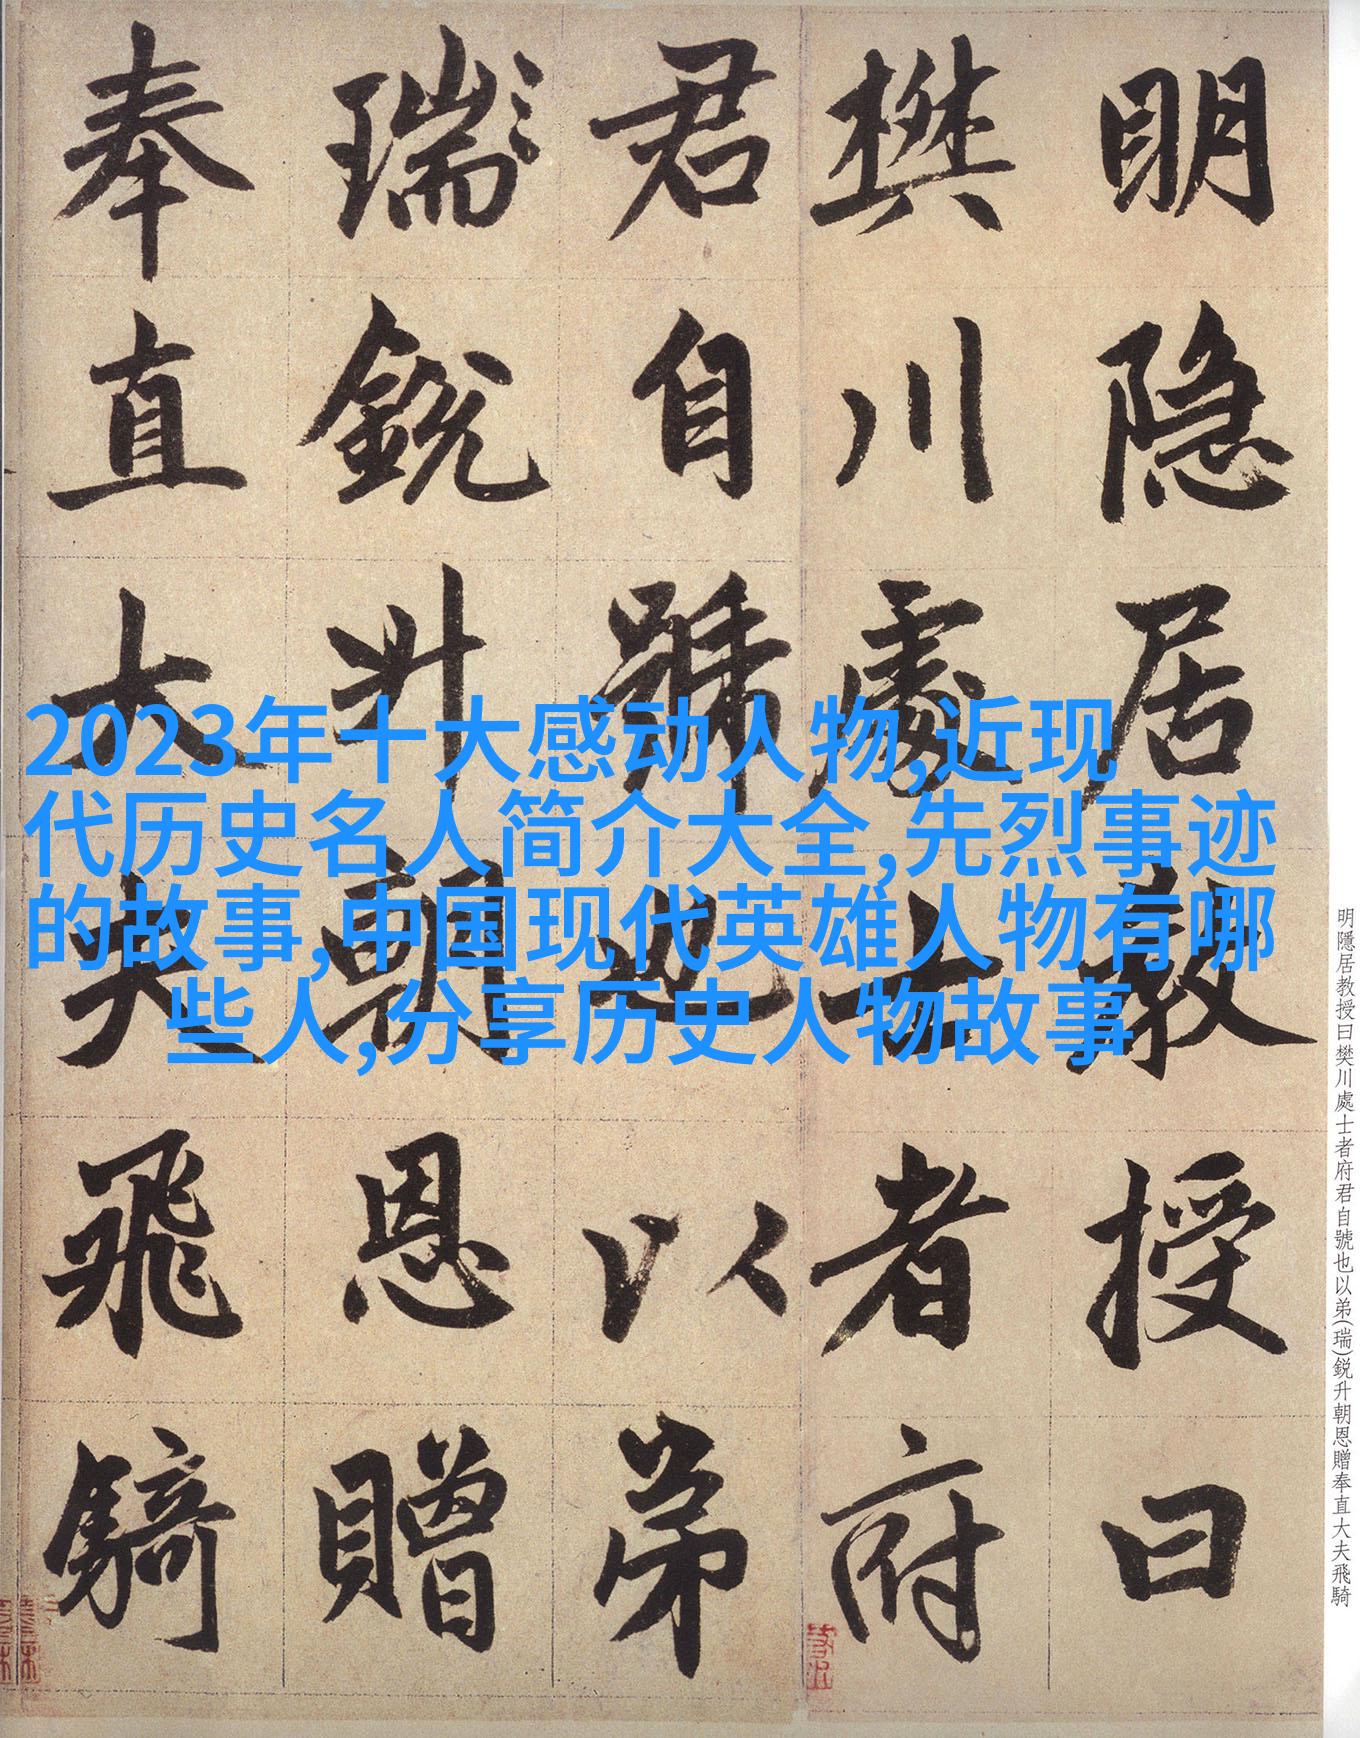 明隐居教授曰
樊川處士者府
君自號也以弟
瑞銳升朝恩贈
奉直大夫飛騎
2023年十大感动人物,近现
代历史名人简介大全,先烈事迹
的故事,中国现代英雄人物有哪
些人,分享历史人物故事
明隱居教授曰樊川處士者府君自號也以弟(瑞)銳升朝恩贈奉直大夫飛騎